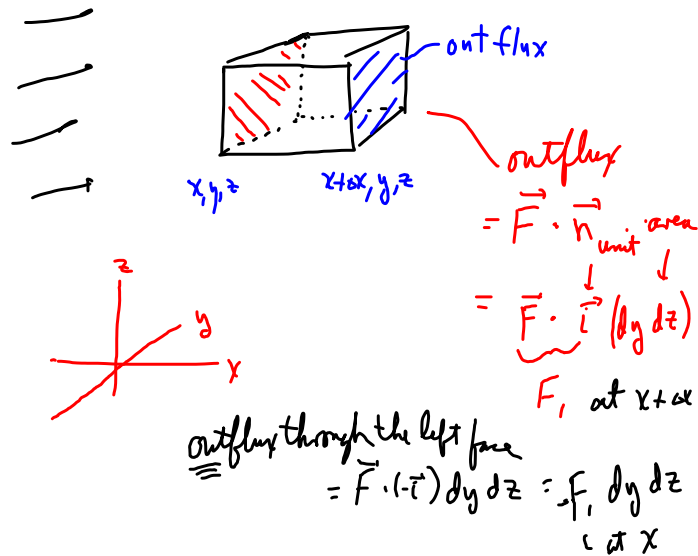 outflux
x,y,z
x+Δx, y, z
outflux
= F⃗ · n⃗ unit · area
= F⃗ · i⃗ (dy dz)
F₁ at x+Δx
z
y
x
outflux through the left face
= F⃗ · (-i⃗) dy dz = -F₁ dy dz
at x